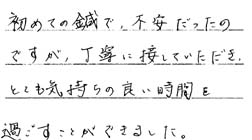 初めての鍼で、不安だったの
ですが、丁寧に接していただき、
とても気持ちの良い時間を
過ごすことができました。